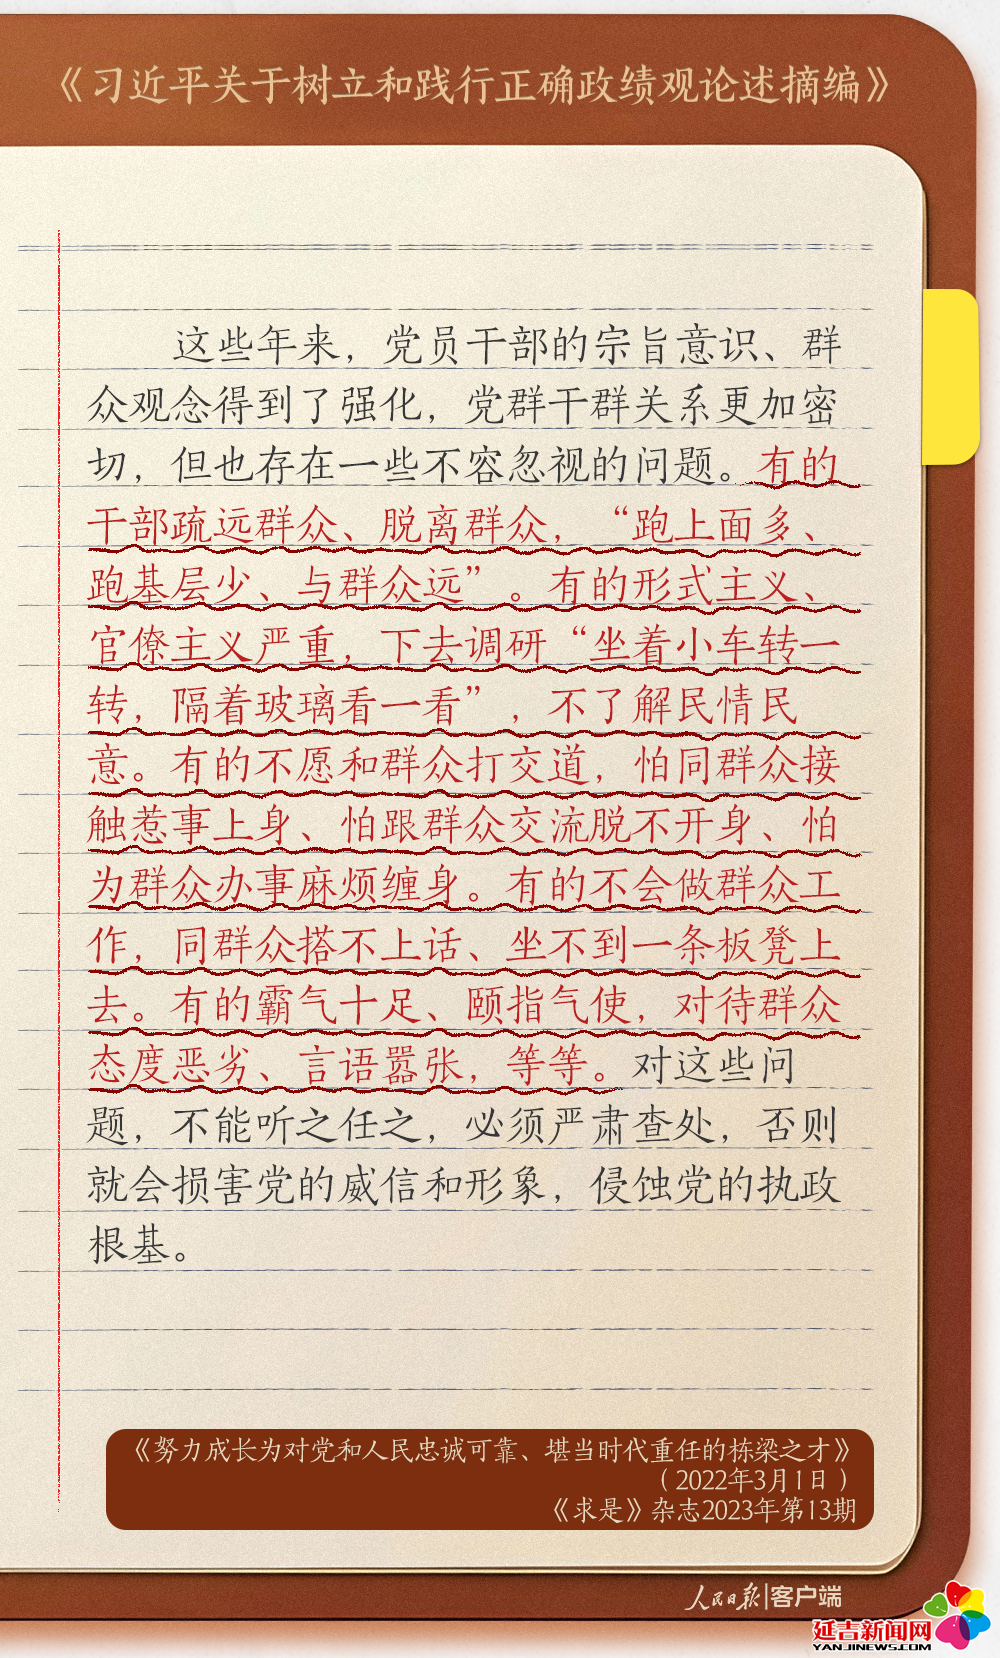 《习近平关于树立和践行正确政绩观论述摘编》
这些年来，党员干部的宗旨意识、群
众观念得到了强化，党群干群关系更加密
切，但也存在一些不容忽视的问题。有的
干部疏远群众、脱离群众，“跑上面多、
跑基层少、与群众远”。有的形式主义、
官僚主义严重，下去调研“坐着小车转一
转，隔着玻璃看一看”，不了解民情民
意。有的不愿和群众打交道，怕同群众接
触惹事上身、怕跟群众交流脱不开身、怕
为群众办事麻烦缠身。有的不会做群众工
作，同群众搭不上话、坐不到一条板凳上
去。有的霸气十足、颐指气使，对待群众
态度恶劣、言语嚣张，等等。对这些问
题，不能听之任之，必须严肃查处，否则
就会损害党的威信和形象，侵蚀党的执政
根基。
《努力成长为对党和人民忠诚可靠、堪当时代重任的栋梁之才》
（2022年3月1日）
《求是》杂志2023年第13期
人民日报|客户端
延吉新闻网
YANJINEWS.COM